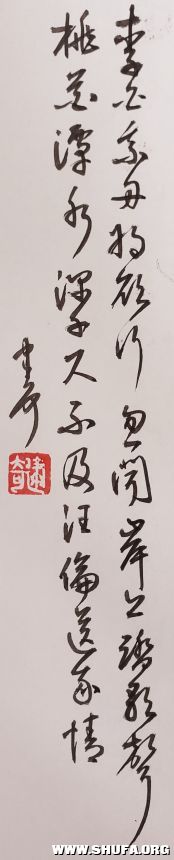 李白乘舟将欲行忽闻岸上踏歌声
桃花潭水深千尺不及汪倫送我情
建奇
建奇
WWW.SHUFA.ORG